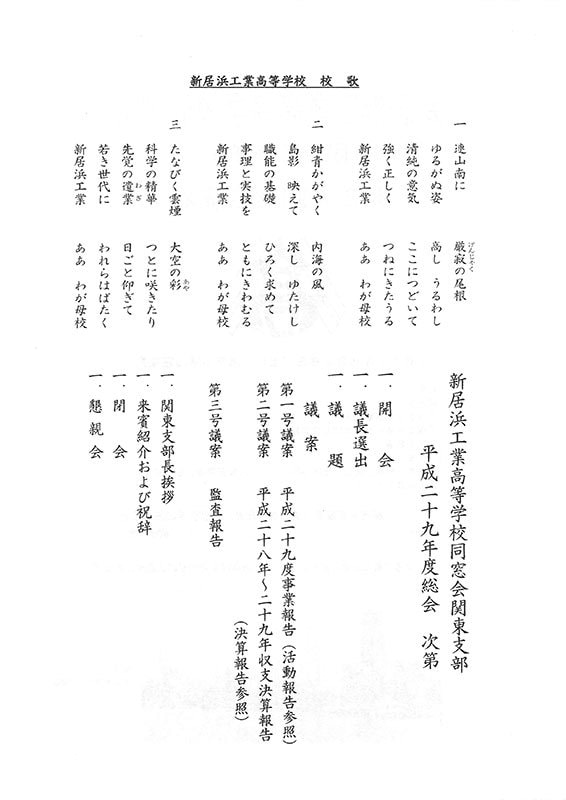 新居浜工業高等学校　校　歌
一　連山南に　厳寂の尾根
げんじゃく
ゆるがぬ姿　高し　うるわし
清純の意気　ここにつどいて
強く正しく　つねにきたうる
新居浜工業　ああ　わが母校
二　紺青かがやく　内海の風
島影　映えて　深し　ゆたけし
職能の基礎　ひろく求めて
事理と実技を　ともにきわむる
新居浜工業　ああ　わが母校
三　たなびく雲煙　大空の彩
あや
科学の精華　つとに咲きたり
先覚の遺業　日ごと仰ぎて
わざ
若き世代に　われらはばたく
新居浜工業　ああ　わが母校
新居浜工業高等学校同窓会関東支部
平成二十九年度総会　次第
一．開　会
一．議長選出
一．議　題
議　案
第一号議案　平成二十九度事業報告（活動報告参照）
第二号議案　平成二十八年～二十九年収支決算報告
（決算報告参照）
第三号議案　監査報告
一．関東支部長挨拶
一．来賓紹介および祝辞
一．閉　会
一．懇親会